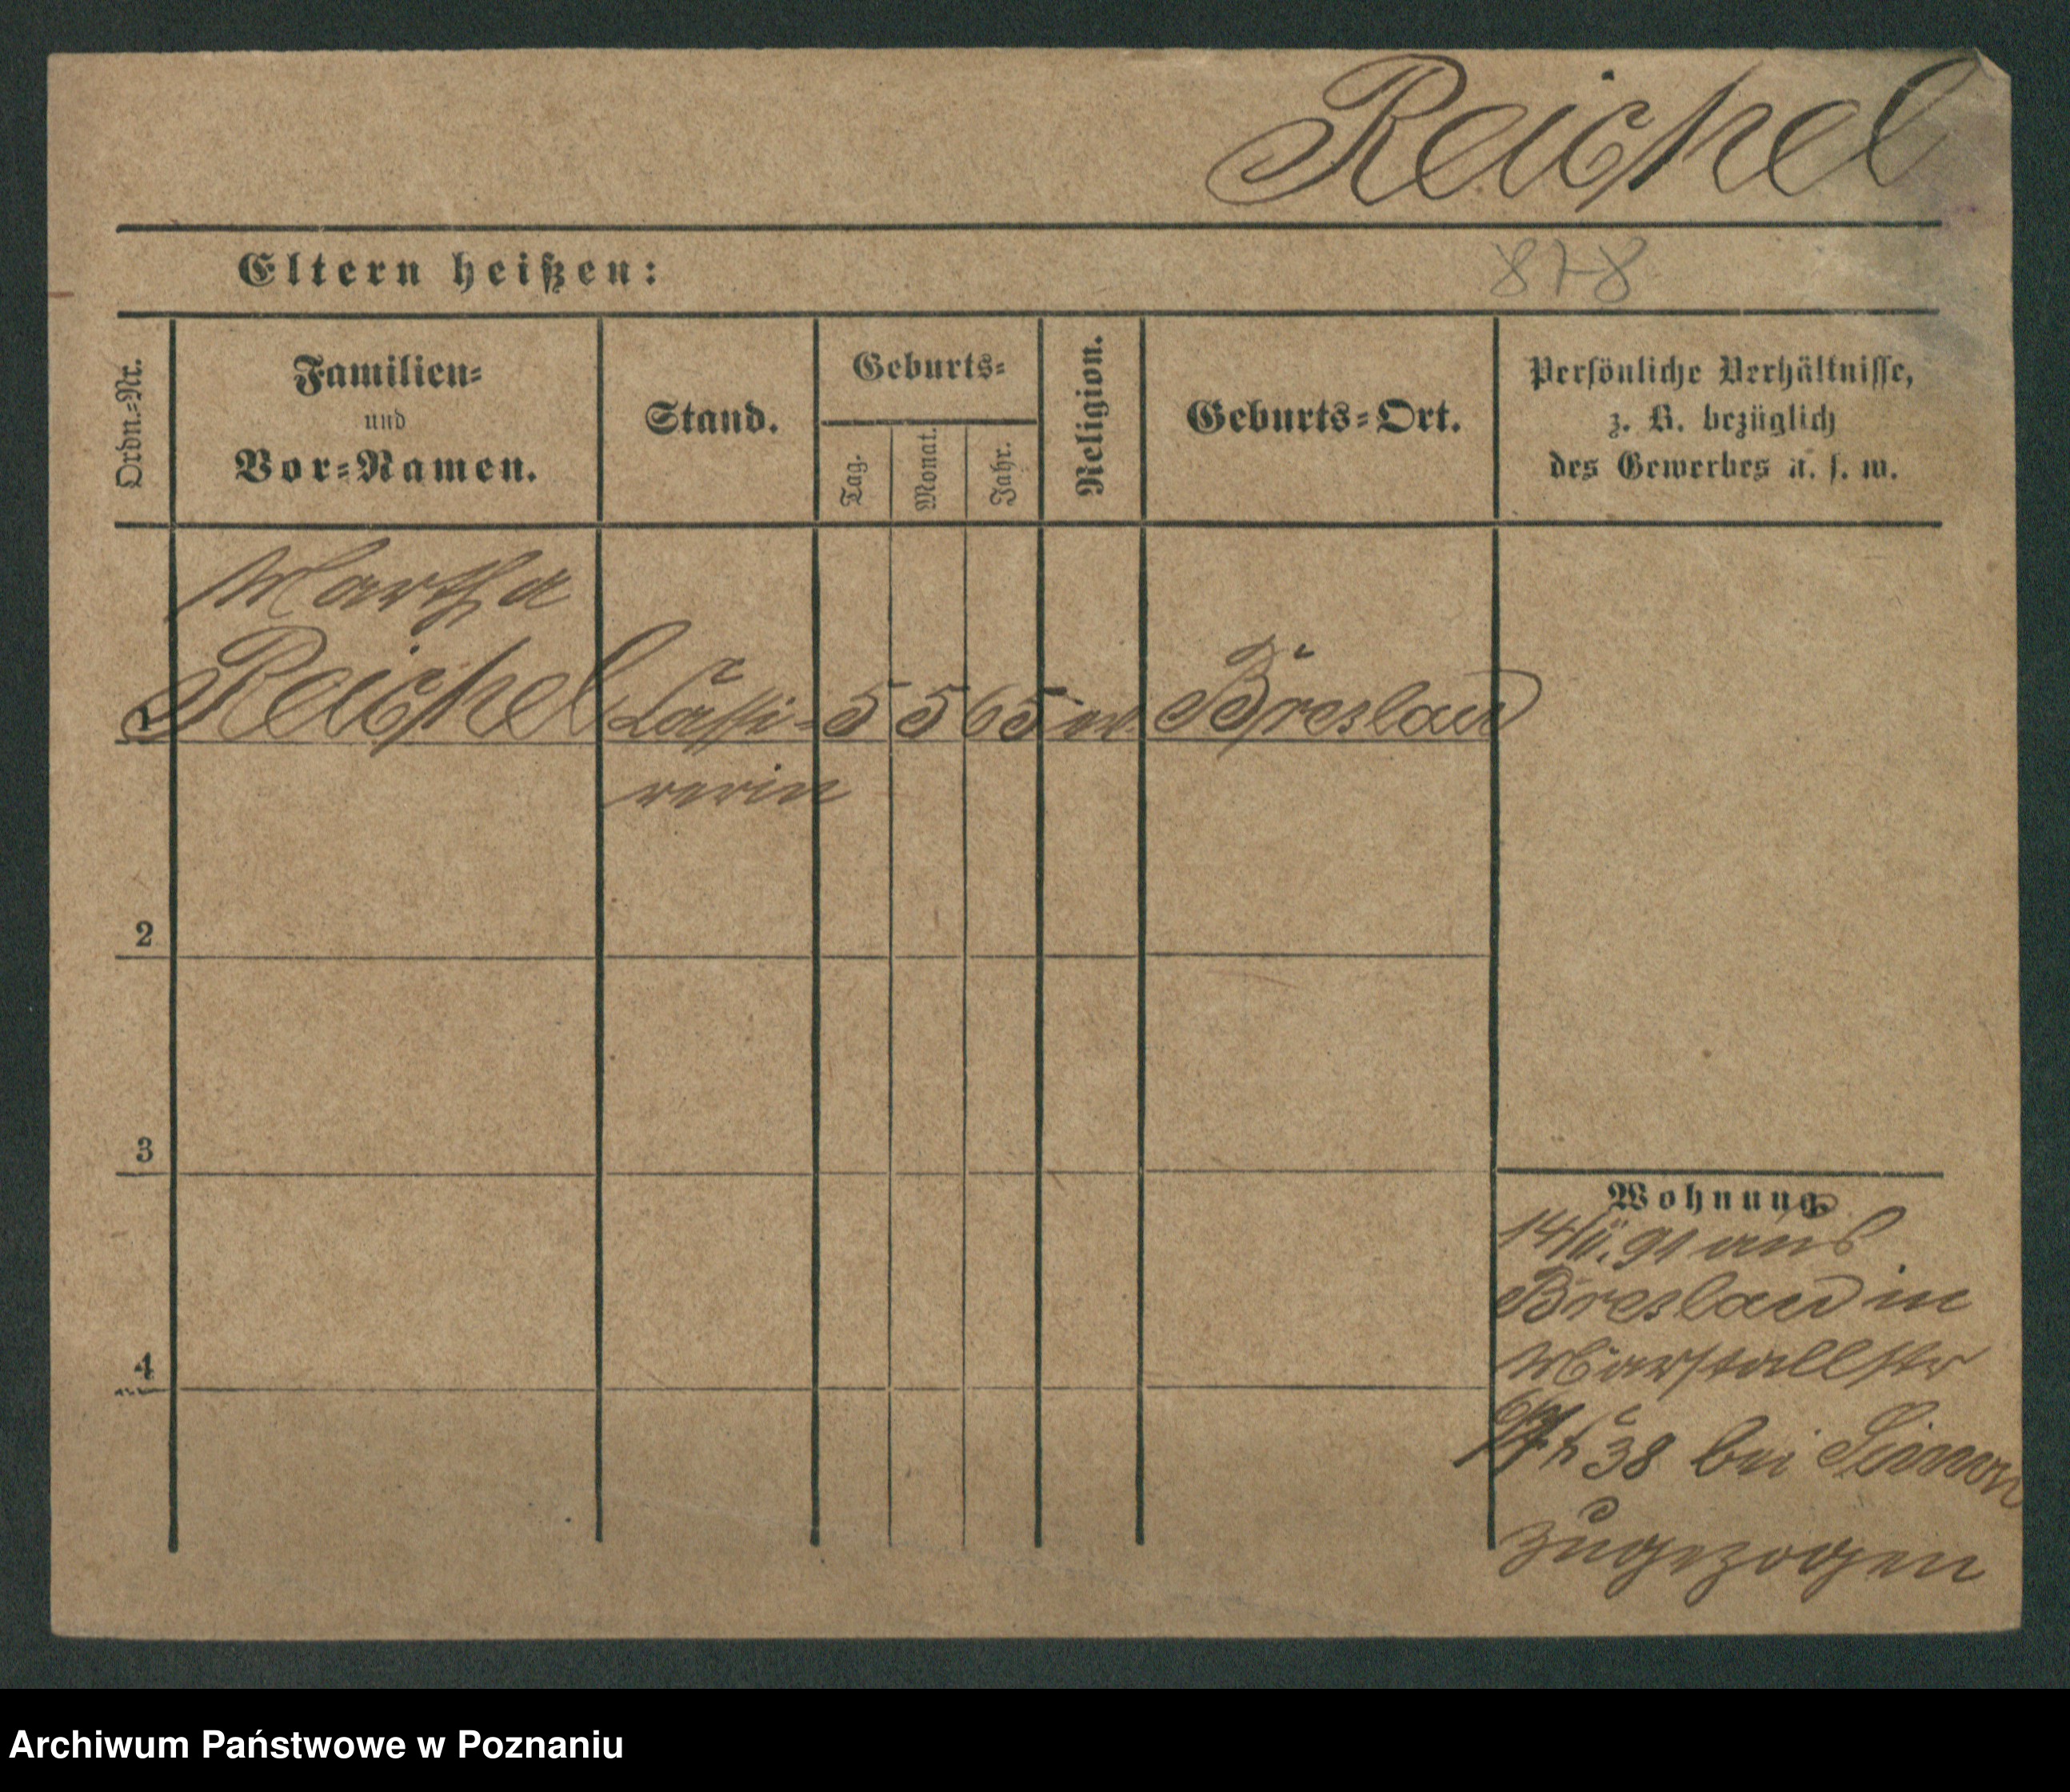 Reichel
Eltern heißen:
878
Ordn.=Nr.
Familien=
und
Vor=Namen.
Stand.
Geburts=
Tag.
Monat.
Jahr.
Religion.
Geburts=Ort.
Persönliche Verhältnisse,
z. B. bezüglich
des Gewerbes u. s. w.
Martha
1 Reichel Cassi= 5 5 65 Breslau
rerin
2
3
4
Wohnung
14/11. 91 aus
Breslau in
str
38 bei Simon
zugezogen
Archiwum Państwowe w Poznaniu